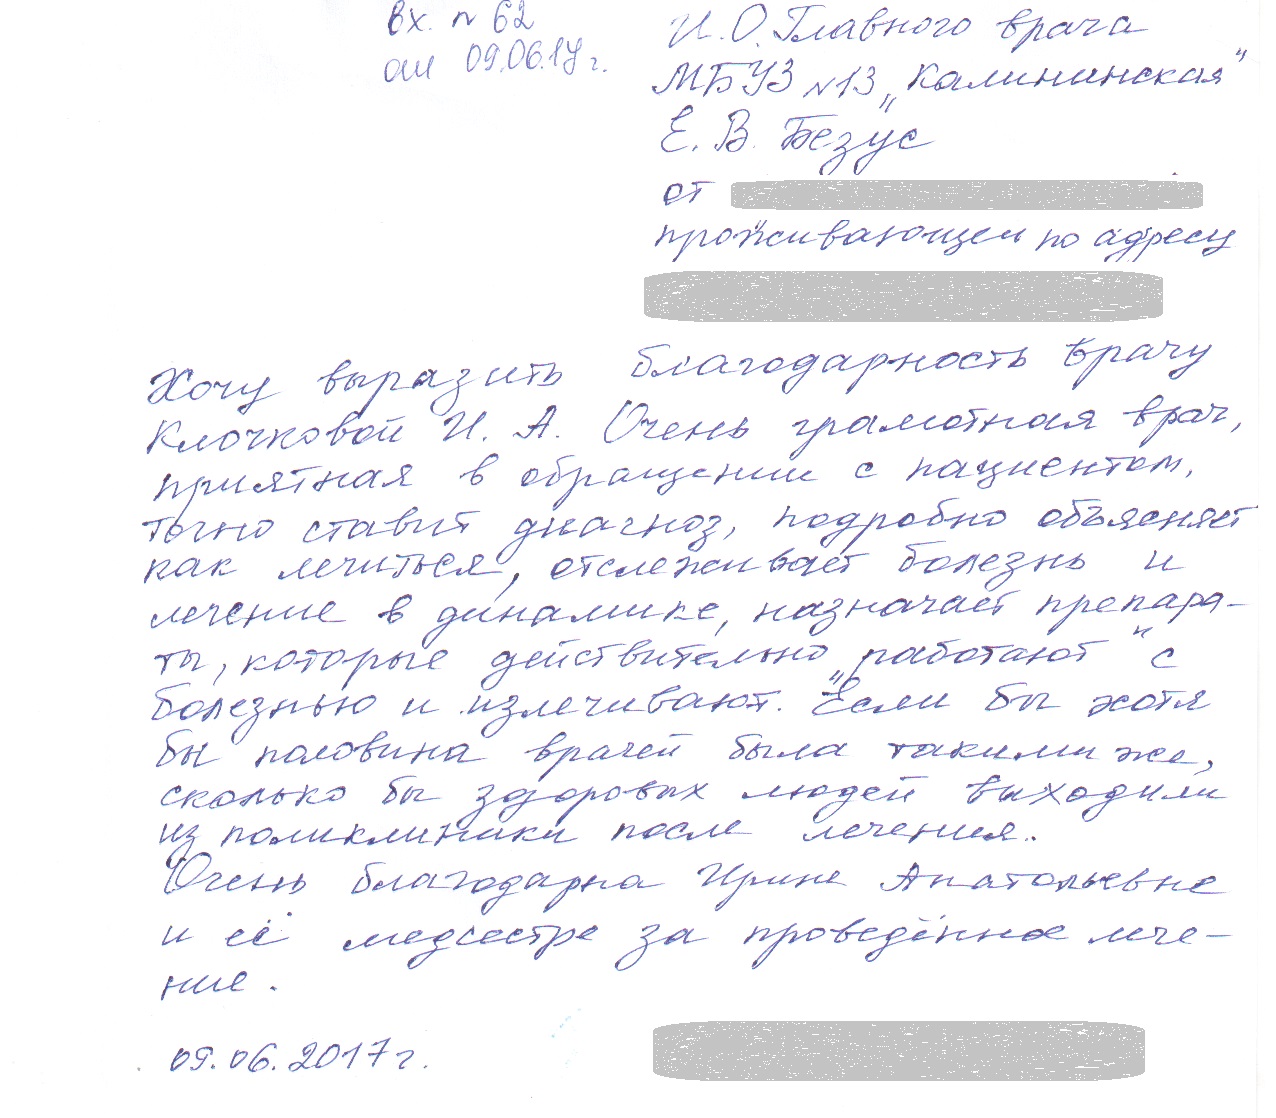 вх. n 62
от 09.06.17г.
И.О. Главного врача
МБУЗ N13 „Калининская"
Е. В. Безус
от
проживающей по адресу
Хочу выразить благодарность врачу
Клочковой И. А. Очень грамотная врач,
приятная в обращении с пациентом,
точно ставит диагноз, подробно объясняет
как лечиться, отслеживает болезнь и
лечение в динамике, назначает препара-
ты, которые действительно „работают" с
болезнью и излечивают. Если бы хотя
бы половина врачей была такими же,
сколько бы здоровых людей выходили
из поликлиники после лечения.
Очень благодарна Ирине Анатольевне
и её медсестре за проведённое лече-
ние.
09.06.2017г.